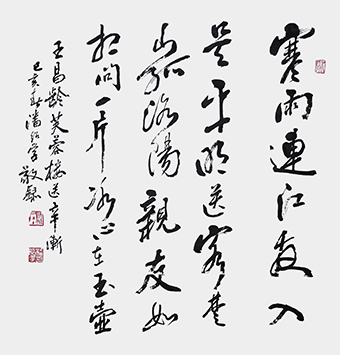 寒雨連江夜入
吴平明送客楚
山孤洛陽親友如
相問一片冰心在玉壺
王昌齡芙蓉樓送辛漸
己亥 潘 学敬録